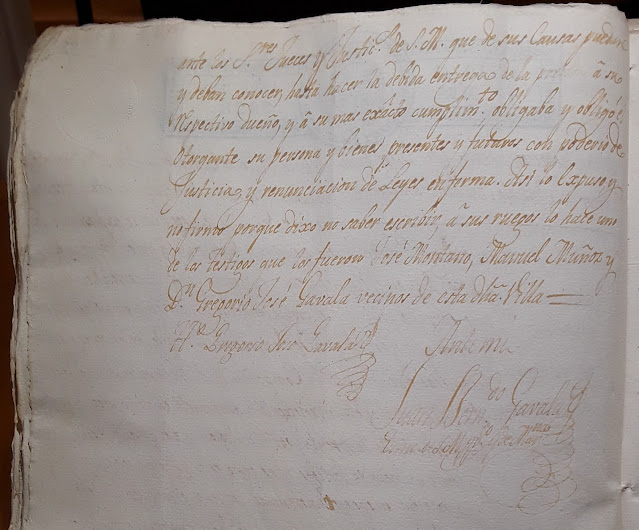 ante los S.res Jueces y Justic.s de S. M. que de sus Causas puedan
y deban conocer, hasta hacer la debida entrega de la â su
respectivo dueño, y â su mas exâcto cumplim.to obligaba y obligó el
Otorgante su persona y bienes presentes y futuros con poderio de
Justicia, y renunciacion de Leyes en forma. Asi lo Expuso y
no firmó porque dixo no saber escribir, â sus ruegos lo hace uno
de los testigos que los fueron José Montano, Manuel Muñoz y
D.n Gregorio José Gavala vecinos de esta dha. Villa
Gregorio José Gavala
Antemi
Juan Bern.do Gavala